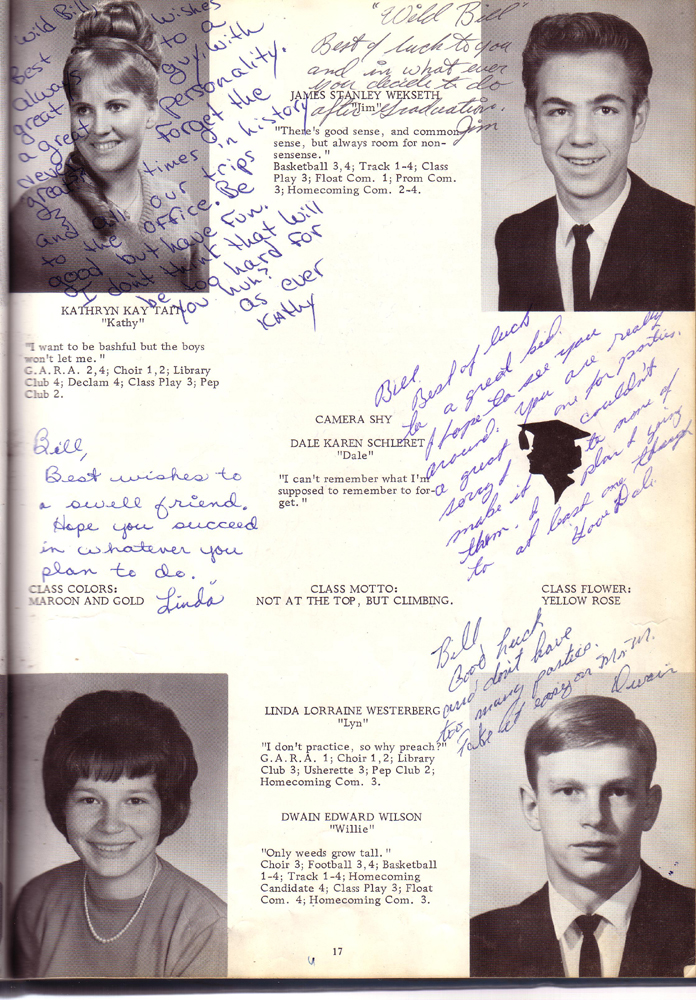 Wild Bill,
Best Wishes
always to a
great guy, with
a great personality.
Never forget the
great times in history
and all our trips
to the office. Be
good but have fun.
I don't think that will
be too hard for
you huh?
as ever
Kathy
KATHRYN KAY TAIT
"Kathy"
"I want to be bashful but the boys
won't let me."
G.A.R.A. 2,4; Choir 1,2; Library
Club 4; Declam 4; Class Play 3; Pep
Club 2.
"Wild Bill"
Best of luck to you
and in what ever
you decide to do
after graduation.
Jim
JAMES STANLEY WEKSETH
"Jim"
"There's good sense, and common
sense, but always room for non-
sensense."
Basketball 3,4; Track 1-4; Class
Play 3; Float Com. 1; Prom Com.
3; Homecoming Com. 2-4.
CAMERA SHY
DALE KAREN SCHLERET
"Dale"
"I can't remember what I'm
supposed to remember to for-
get."
Bill,
Best of luck
to a great kid.
I hope to see you
around. You are really
a great one for parties.
Sorry I couldn't
make it to more of
them. I plan on going
to at least one though
Love Dale
Bill,
Best wishes to
a swell friend.
Hope you succeed
in whatever you
plan to do.
"Linda"
CLASS COLORS:
MAROON AND GOLD
CLASS MOTTO:
NOT AT THE TOP, BUT CLIMBING.
CLASS FLOWER:
YELLOW ROSE
Bill
Good luck
and don't have
too many parties.
Take it easy on Mr. M.
Dwain
LINDA LORRAINE WESTERBERG
"Lyn"
"I don't practice, so why preach?"
G.A.R.A. 1; Choir 1,2; Library
Club 3; Usherette 3; Pep Club 2;
Homecoming Com. 3.
DWAIN EDWARD WILSON
"Willie"
"Only weeds grow tall."
Choir 3; Football 3,4; Basketball
1-4; Track 1-4; Homecoming
Candidate 4; Class Play 3; Float
Com. 4; Homecoming Com. 3.
17